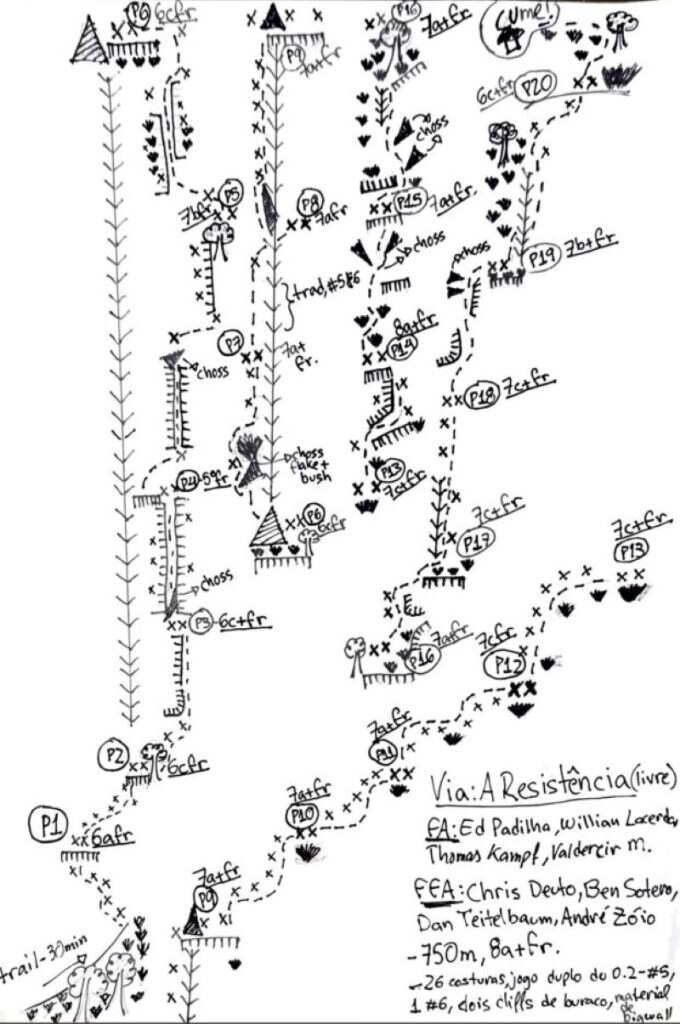 P6 6cfr
P5
7bfr
P7
choss
P4 5ºfr
choss
P3 6c+fr
P2
6cfr
P1
6afr
trail-30min
P9
7a+fr
P8
7afr
trad, #5&6
7a+
fr.
choss
flake +
bush
P6
6cfr
P16 7a+fr
choss
P15 7a+fr
choss
8a+fr
P14
P13
7c+fr
CUME!
6c+fr P20
choss
P19 7b+fr
P18 7c+fr
7c+fr
P17
7a+fr
P16
7c+fr
P13
7cfr
P12
7a+fr
P11
7a+fr
P10
7a+fr
P9
Via: A Resistência (livre)
FA: Ed Padilha, Willian Lacerda,
Thomas Kampf, Valdercir M.
FFA: Chris Deuto, Ben Sotero,
Dan Teitelbaum, André Zóio
-750m, 8a+fr.
-26 costuras, jogo duplo do 0.2-#5,
1 #6, dois cliffs de buraco, material
de
bigwall